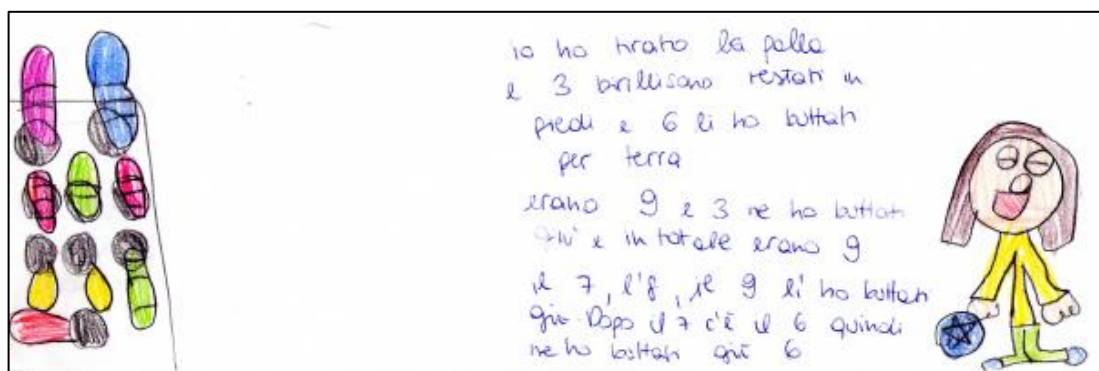 io ho tirato la palla
e 3 birilli sono restati in
piedi e 6 li ho buttati
per terra
erano 9 e 3 ne ho buttati
giù e in totale erano 9
il 7, l'8, il 9 li ho buttati
giù. Dopo il 7 c'è il 6 quindi
ne ho buttati giù 6